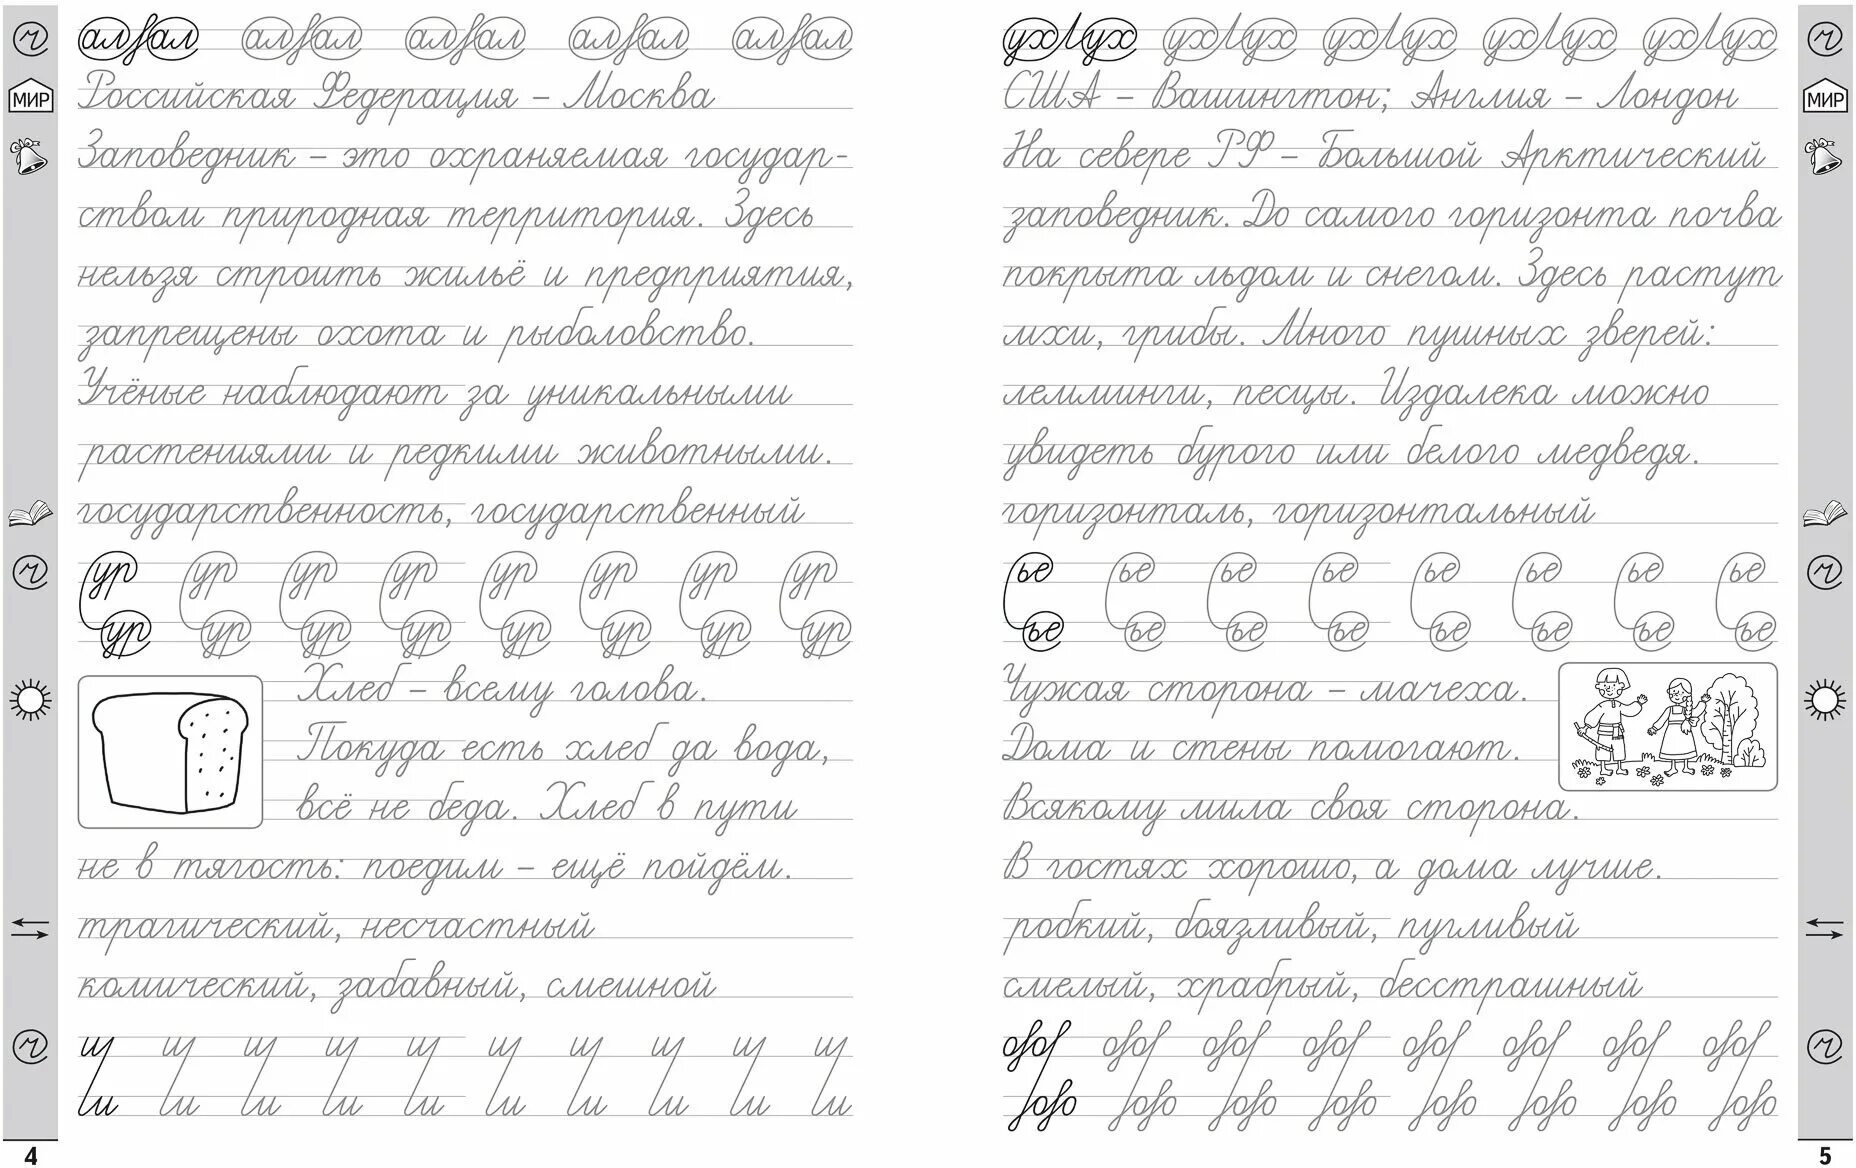 ал ал ал ал ал ал ал ал ал ал
МИР
Российская Федерация – Москва
Заповедник – это охраняемая государ-
ством природная территория. Здесь
нельзя строить жильё и предприятия,
запрещены охота и рыболовство.
Учёные наблюдают за уникальными
растениями и редкими животными.
государственность, государственный
ур ур ур ур ур ур ур ур
ур ур ур ур ур ур ур ур
Хлеб – всему голова.
Покуда есть хлеб да вода,
всё не беда. Хлеб в пути
не в тягость: поедим – ещё пойдём.
трагический, несчастный
комический, забавный, смешной
4
ух ух ух ух ух ух ух ух ух ух
МИР
США – Вашингтон; Англия – Лондон
На севере РФ – Большой Арктический
заповедник. До самого горизонта почва
покрыта льдом и снегом. Здесь растут
мхи, грибы. Много пушных зверей:
лемминги, песцы. Издалека можно
увидеть бурого или белого медведя.
горизонталь, горизонтальный
ье ье ье ье ье ье ье ье
ье ье ье ье ье ье ье ье
Чужая сторона – мачеха.
Дома и стены помогают.
Всякому мила своя сторона.
В гостях хорошо, а дома лучше.
робкий, боязливый, пугливый
смелый, храбрый, бесстрашный
5